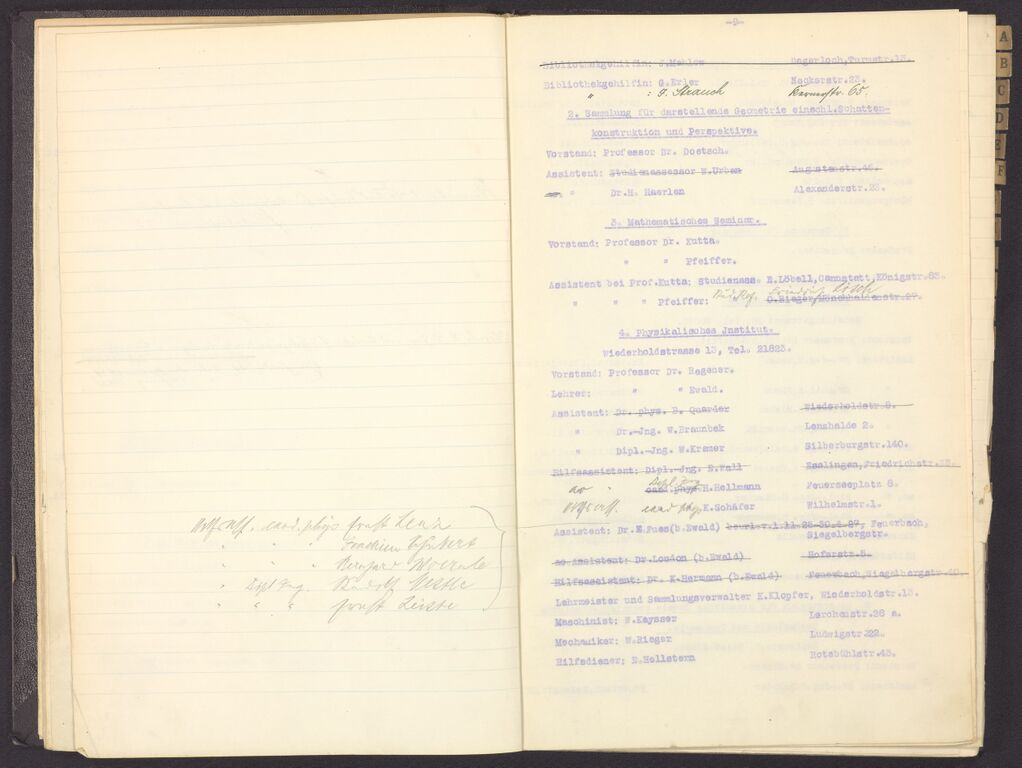 Hilfsass. cand. phys Ernst Lenz
" " " Joachim Schubert
" " "
Dipl Ing. Rudolf
" " " Ernst
-9-
Bibliothekgehilfin: J.Mahlow Degerloch,Turmstr.13.
Bibliothekgehilfin: G.Erler Neckarstr.23.
" : J. Strauch str. 65.
2. Sammlung für darstellende Geometrie einschl.Schatten-
konstruktion und Perspektive.
Vorstand: Professor Dr. Doetsch.
Assistent: Studienassessor W.Urban Augustenstr.45.
" Dr.H. Haerlen Alexanderstr.23.
3. Mathematisches Seminar.
Vorstand: Professor Dr. Kutta.
" " Pfeiffer.
Assistent bei Prof.Kutta: Studienass. E.Löbell,Cannstatt,Königstr.83.
" " " Pfeiffer: Friedrich Lösch
O.Rieger,Mönchhaldenstr.27.
4. Physikalisches Jnstitut.
Wiederholdstrasse 13, Tel. 21823.
Vorstand: Professor Dr. Regener.
Lehrer: " " Ewald.
Assistent: Dr. phys. B. Quarder Wiederholdstr.8.
" Dr.-Jng. W.Braunbek Lenzhalde 2.
" Dipl.-Jng. W.Kramer Silberburgstr.140.
Hilfsassistent: Dipl.-Jng. E.Wall Esslingen,Friedrichstr.
ao " Dipl Ing
cand. phys. H.Hellmann Feuerseeplatz 8.
Hilfsass. cand phys K.Schäfer Wilhelmstr.1.
Assistent: Dr.E.Fues(b.Ewald) beurl.v.1.11.26-30.4.27, Feuerbach,
Siegelbergstr.
ao Assistent: Dr.London (b.Ewald) Hoferstr.5.
Hilfsassistent: Dr. K.Hermann (b.Ewald) Feuerbach,Siegelbergstr.40.
Lehrmeister und Sammlungsverwalter K.Klopfer, Wiederholdstr.13.
Maschinist: W.Kaysser Lerchenstr.26 a.
Mechaniker: W.Rieger Ludwigstr.22.
Hilfsdiener: E.Hellstern Rotebühlstr.43.